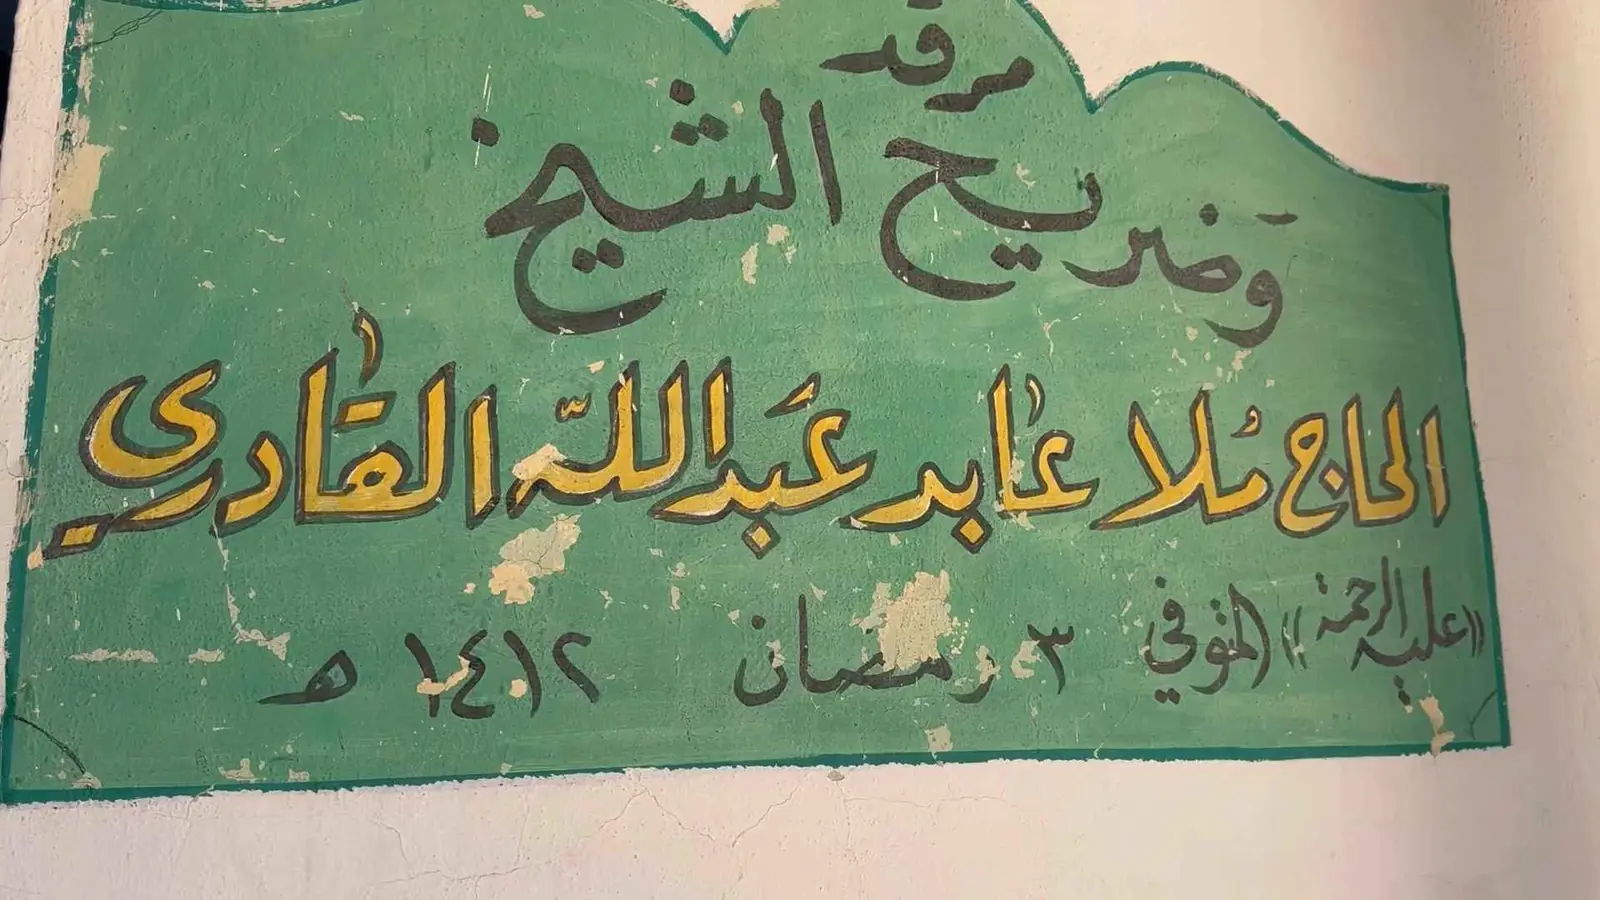 مرقد
وَضريح الشيخ
الحاج مُلا عابد عَبدالله القادري
((عليه الرحمة)) المتوفي ٣ رمضان ١٤١٢ هـ